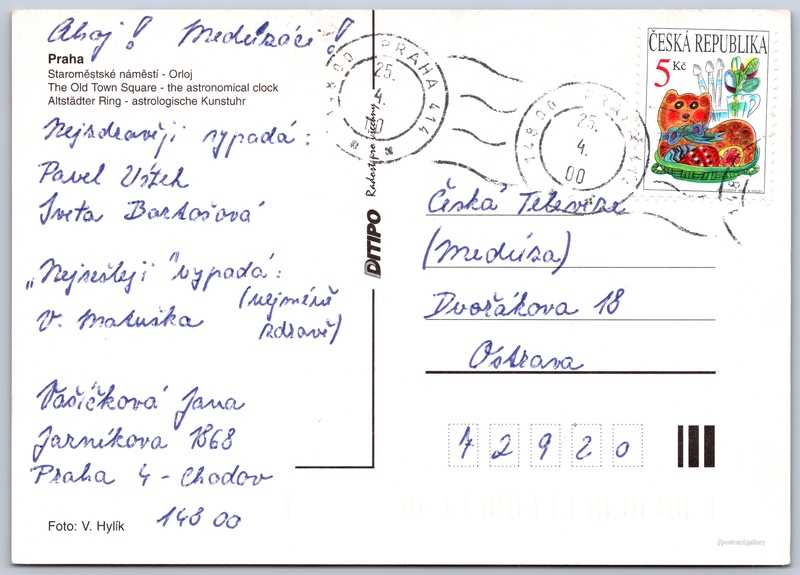 Ahoj! Medúzáci!
Praha
Staroměstské náměstí - Orloj
The Old Town Square - the astronomical clock
Altstädter Ring - astrologische Kunstuhr
Nejzdravěji vypadá:
Pavel Vítek
Iveta Bartošová
„Nejsešleji" vypadá:
(nejméně
V. Matuška
zdravě)
Vašíčková Jana
Jarníkova 1868
Praha 4 - Chodov
148 00
Foto: V. Hylík
DITIPO
Radost pro všechny
148 00 PRAHA 414
25.
4.
00
148 00 PRAHA 414
25.
4.
00
ČESKÁ REPUBLIKA
5 Kč
Česká Televize
(Medúza)
Dvořákova 18
Ostrava
72920
@postcard.gallery